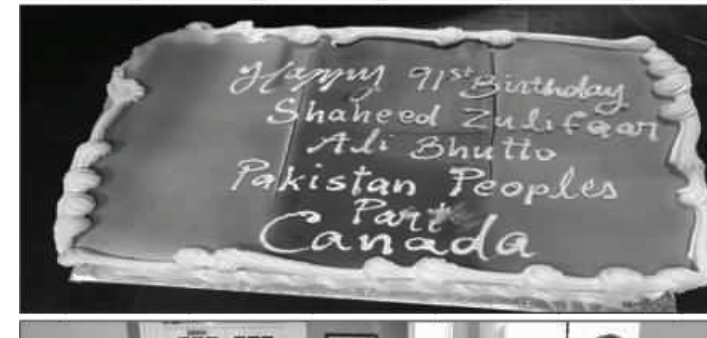 Happy 91st Birthday
Shaheed Zulifqar
Ali Bhutto
Pakistan Peoples
Part
Canada